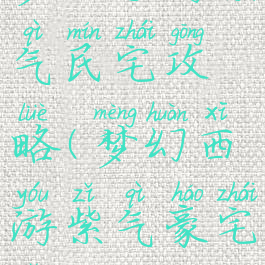 qì mín zhái gōng
气民宅攻
lüè mèng huàn xī
略(梦幻西
yóu zǐ qì háo zhái
游紫气豪宅